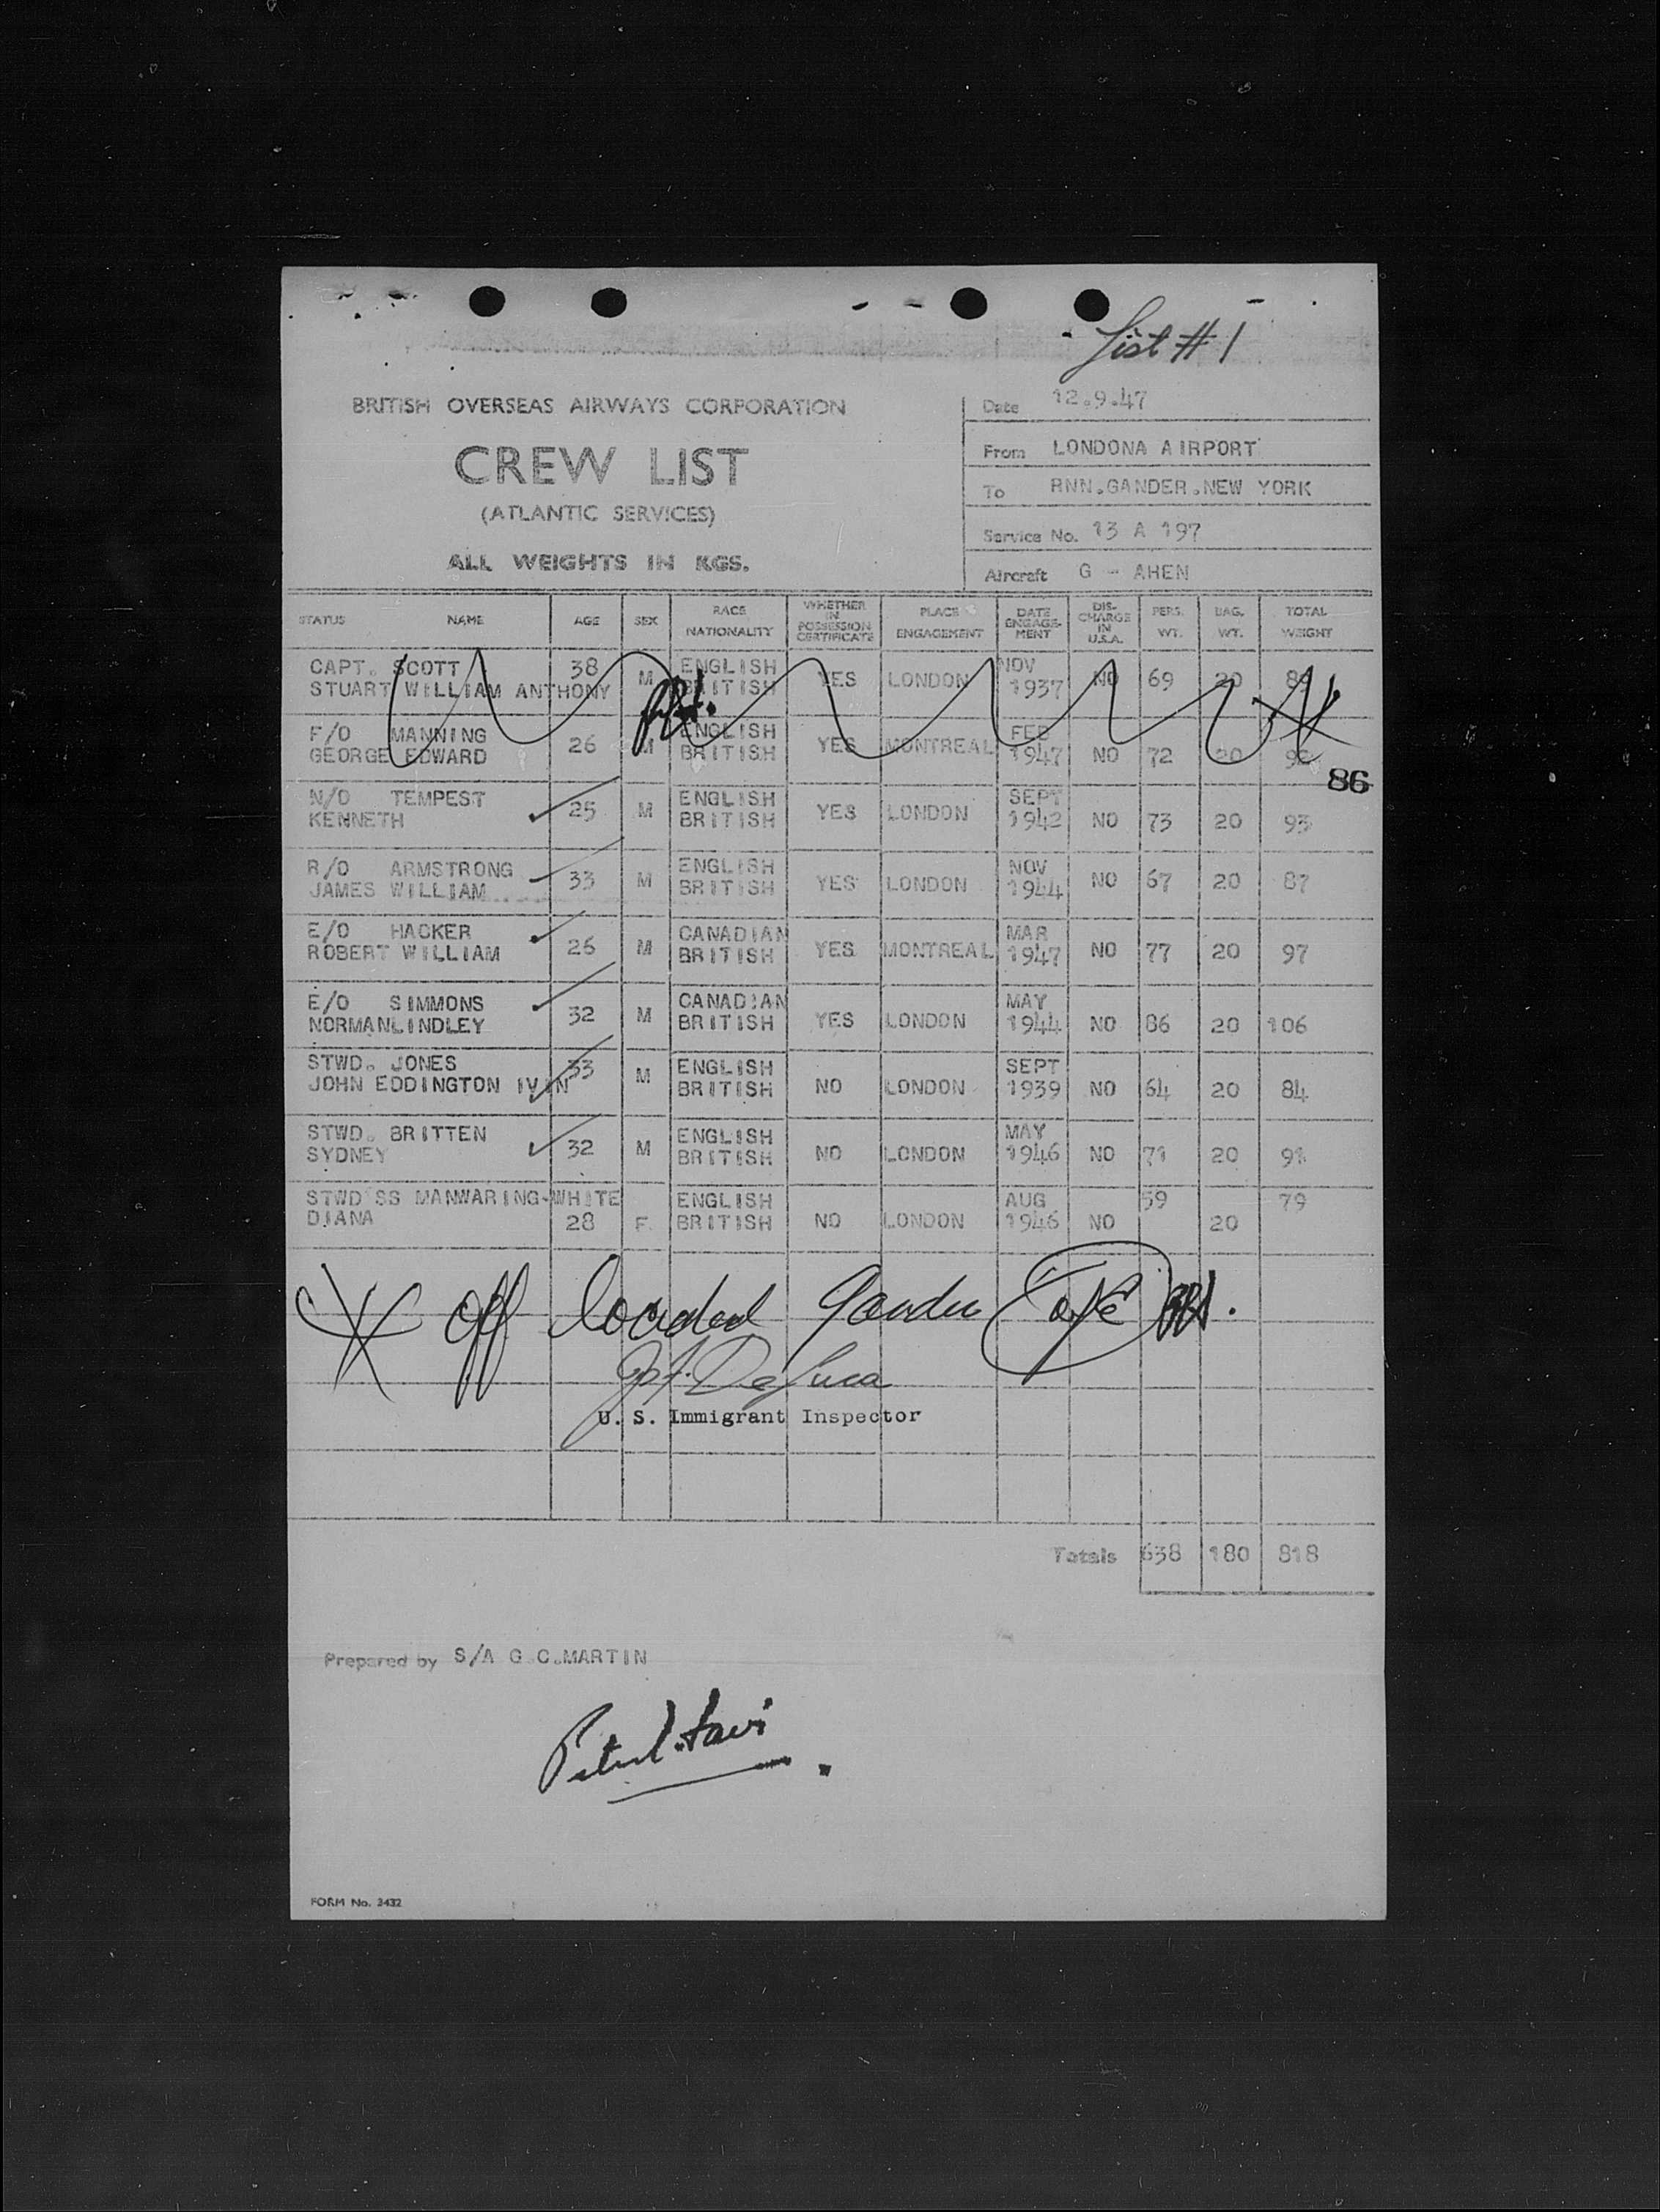 List # 1
BRITISH OVERSEAS AIRWAYS CORPORATION
CREW LIST
(ATLANTIC SERVICES)
ALL WEIGHTS IN KGS.
Date 12.9.47
From LONDONA AIRPORT
To RNN.GANDER.NEW YORK
Service No. 13 A 197
Aircraft G - AHEN
STATUS NAME AGE SEX RACE NATIONALITY WHETHER IN POSSESSION CERTIFICATE PLACE ENGAGEMENT DATE ENGAGE-MENT DIS-CHARGE IN U.S.A. PERS. WT. BAG. WT. TOTAL WEIGHT
CAPT. SCOTT 38 ENGLISH NOV
STUART WILLIAM ANTHONY M BRITISH YES LONDON 1937 NO 69 20 89
F/O MANNING ENGLISH FEB
GEORGE EDWARD 26 M BRITISH YES MONTREAL 1947 NO 72 20 92
86
N/O TEMPEST ENGLISH SEPT
KENNETH 25 M BRITISH YES LONDON 1942 NO 73 20 93
R/O ARMSTRONG ENGLISH NOV
JAMES WILLIAM 33 M BRITISH YES LONDON 1944 NO 67 20 87
E/O HACKER CANADIAN MAR
ROBERT WILLIAM 26 M BRITISH YES MONTREAL 1947 NO 77 20 97
E/O SIMMONS CANADIAN MAY
NORMANLINDLEY 32 M BRITISH YES LONDON 1944 NO 86 20 106
STWD. JONES 33 ENGLISH SEPT
JOHN EDDINGTON IVAN M BRITISH NO LONDON 1939 NO 64 20 84
STWD. BRITTEN ENGLISH MAY
SYDNEY 32 M BRITISH NO LONDON 1946 NO 71 20 91
STWD'SS MANWARING-WHITE ENGLISH AUG 59 79
DIANA 28 F. BRITISH NO LONDON 1946 NO 20
off loaded Gander
U. S. Immigrant Inspector
Totals 638 180 818
Prepared by S/A G.C.MARTIN
FORM No. 2432